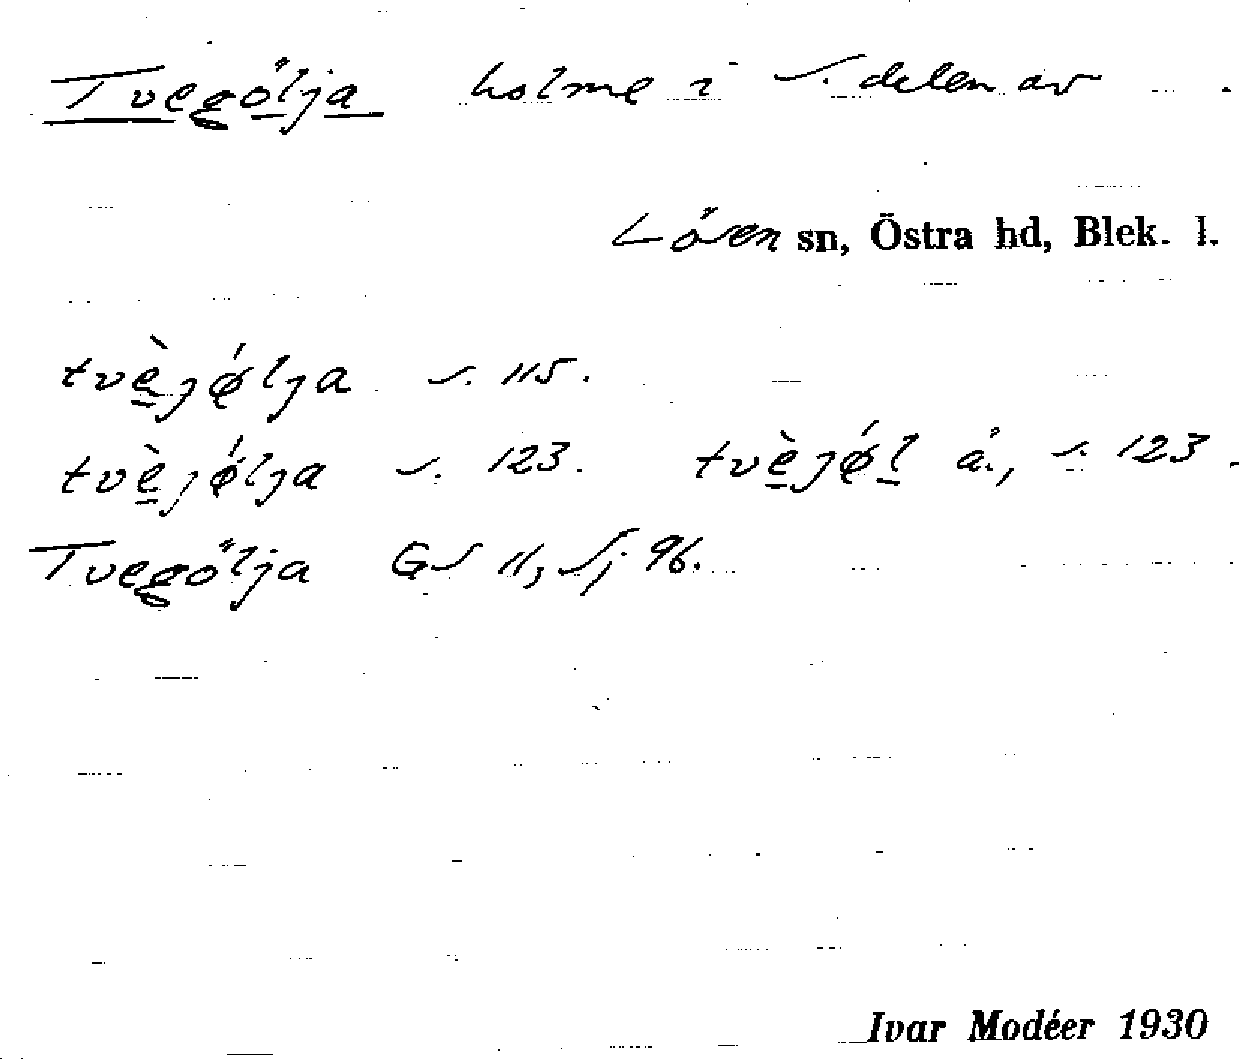 Tvegölja holme i S. delen av
Lösen sn, Östra hd, Blek. l.
tvè̱jǿlja s. 115.
tvè̱jǿlja s. 123. tvè̱jǿḻ å., s. 123.
Tvegölja GS 11, Sj 96.
Ivar Modéer 1930